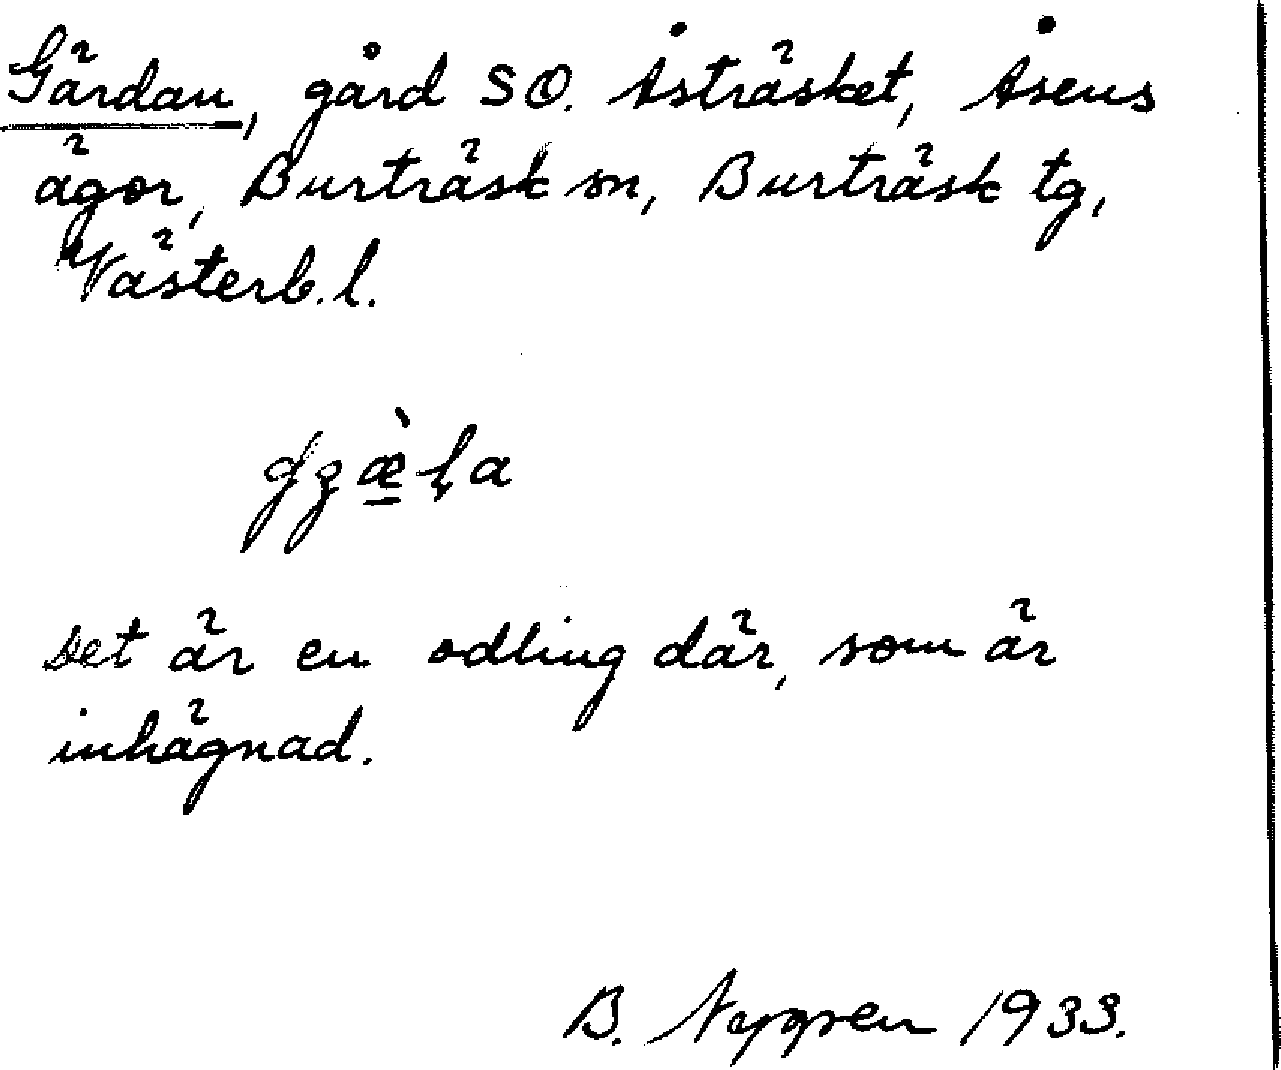 Gärdan, gård SO. Åsträsket, Åsens
ägor, Burträsk sn, Burträsk tg,
Västerb. l.
Det är en odling där, som är
inhägnad.
B. Nygren 1933.